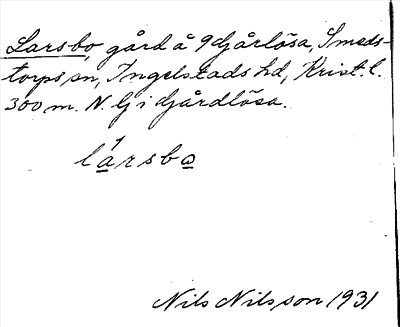 Larsbo, gård å 9 Gårlösa, Smeds-
torps sn, Ingelstads hd, Krist. l.
300 m. N. G i Gårdlösa.
lársbo
Nils Nilsson 1931